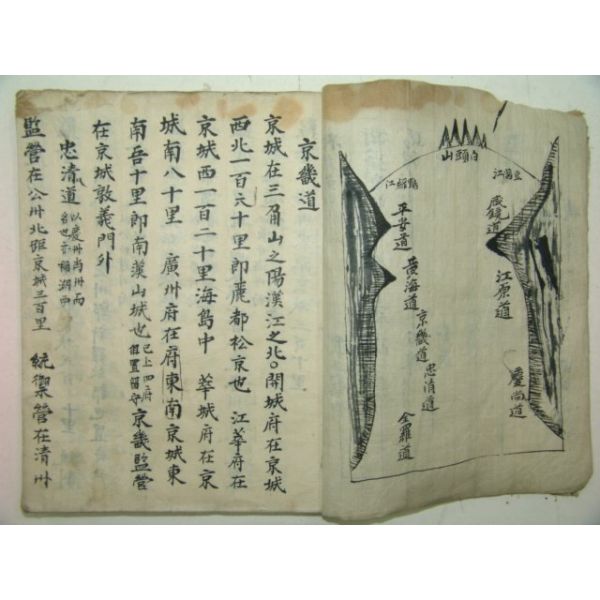 白頭山
豆滿江
鴨綠江
咸鏡道
平安道
江原道
黃海道
京畿道
忠清道
慶尙道
全羅道
京畿道
京城在三角山之陽漢江之北○開城府在京城
西北一百六十里即麗都松京也 江華府在
京城西一百二十里海島中 華城府在京
城南八十里 廣州府在府東南京城東
南吾十里即南漢山城也已上四府俱置留守京畿監營
在京城敦義門外
忠清道
監營在公州北距京城三百里 統禦營在清州